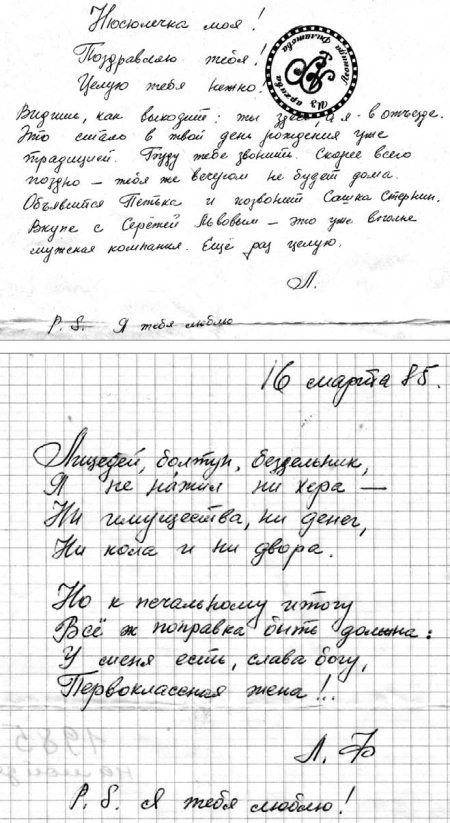 Нюсюлечка моя!
Поздравляю тебя!
Целую тебя нежно!
Из архива Леонида Филатова
Видишь, как выходит: ты здесь, а я - в отъезде.
Это стало в твой день рождения уже
традицией. Буду тебе звонить. Скорее всего
поздно – тебя же весь день не будет дома.
Объявится Петька и позвонит Сашка Стернин.
Вкупе с Серёжей Львовым – это уже вполне
мужская компания. Ещё раз целую.
Л.
P.S. Я тебя люблю
16 марта 85.
Лицедей, болтун, бездельник,
Я не нажил ни хера —
Ни имущества, ни денег,
Ни кола и ни двора.
Но к печальному итогу
Всё ж поправка быть должна:
У меня есть, слава богу,
Первоклассная жена!..
Л. Ф
P.S. Я тебя люблю!